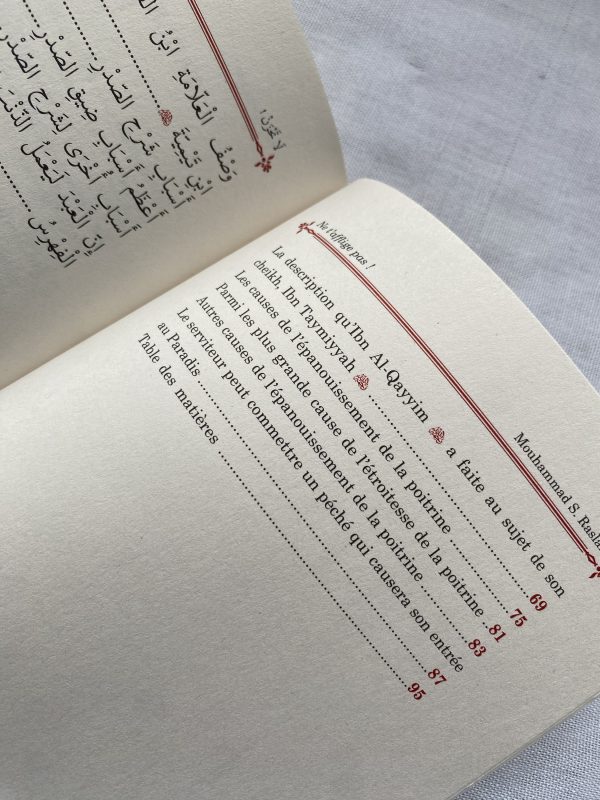 لَا تَحْزَنْ!
وَصْفُ الْعَلَّامَةِ ابْنِ
ابْنِ تَيْمِيَّةَ
أَسْبَابُ شَرْحِ الصَّدْرِ
أَعْظَمُ أَسْبَابِ ضِيقِ الصَّدْرِ
أَسْبَابٌ أُخْرَى لِشَرْحِ الصَّدْرِ
إِنَّ الْعَبْدَ لَيَعْمَلُ الذَّنْبَ
الْفِهْرِسُ
Ne t'afflige pas !
Mouhammad S. Rasla
La description qu'Ibn Al-Qayyim a faite au sujet de son
cheikh, Ibn Taymiyyah 69
Les causes de l'épanouissement de la poitrine 75
Parmi les plus grande cause de l'étroitesse de la poitrine 81
Autres causes de l'épanouissement de la poitrine 83
Le serviteur peut commettre un péché qui causera son entrée
au Paradis 87
Table des matières 95